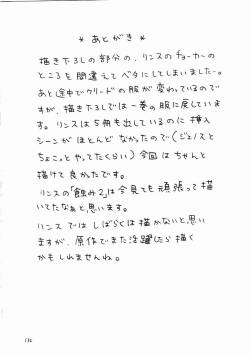 * あとがき *
描き下ろしの部分の、リンスのチョーカーの
ところを間違えてベタにしてしまいました…。
あと途中でクリードの服が変わっているので
すが、描き下ろしでは一巻の服に戻していま
す。リンスは5冊も出しているのに挿入
シーンがほとんどなかったので(ジェノスと
ちょこっとやってたくらい)今回はちゃんと
描けて良かったです。
リンスの「蝕み2」は今見ても頑張って描
いてたなぁと思います。
リンスではしばらくは描かないと思い
ますが、原作でまた活躍したら描く
かもしれませんね。